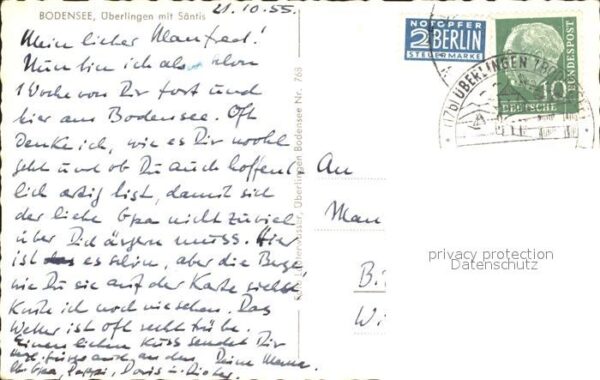 BODENSEE, Überlingen mit Säntis
21.10.55.
Mein lieber Manfred!
Nun bin ich also schon
1 Woche von Dir fort und
hier am Bodensee. Oft
denke ich, wie es Dir wohl
geht und ob Du auch hoffent-
lich artig bist, damit sich
der liebe Opa nicht zuviel
über Dich ärgern muss. Hier
ist es schön, aber die Berge
wie Du sie auf der Karte siehst
konnte ich noch nie sehen. Das
Wetter ist oft recht trübe.
Einen lieben Kuss sendet Dir
Deine Mama.
Opa, Pappi, Doris u. Dieter.
Überlingen Bodensee Nr. 768
NOTOPFER
2 BERLIN
STEUERMARKE
10
DEUTSCHE
BUNDESPOST
(17b) ÜBERLINGEN
An
Man
Bi
Wi
privacy protection
Datenschutz